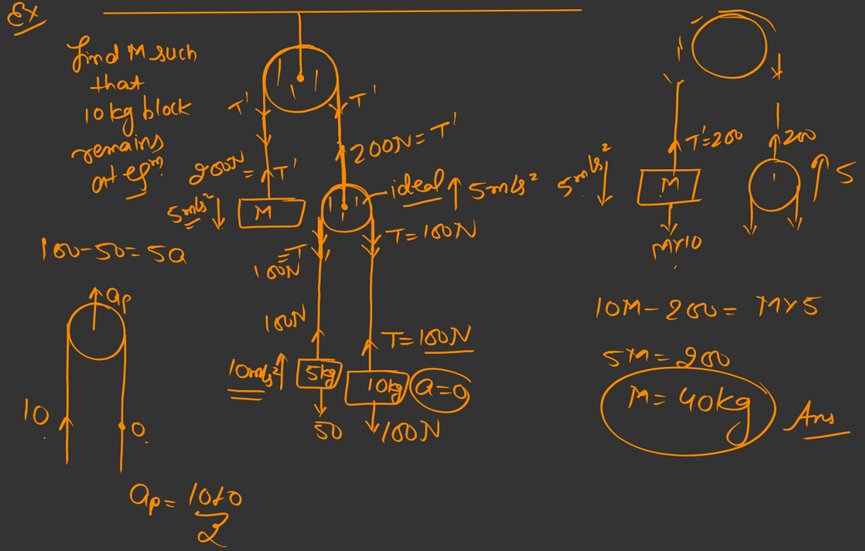 Ex
find M such
that
10 kg block
remains
at eqm?
T'
T'
200N = T'
200N = T'
5m/s²
M
ideal
5m/s²
100-50=5a
T=100N
=T
100N
100N
T=100N
10m/s²
5kg
10kg
a=0
50
100N
ap
10
0
ap = 10+0
2
T'=200
200
5m/s²
M
5
M×10
10M-200 = M×5
5M=200
M=40kg
Ans